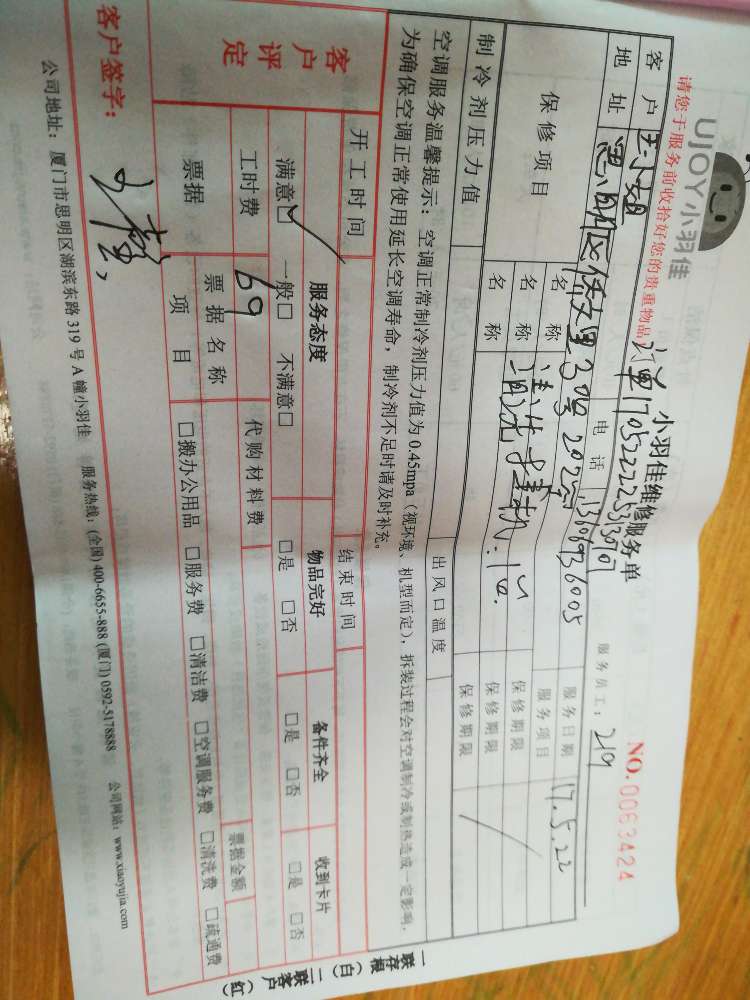 UJOY小羽佳
小羽佳维修服务单
NO. 0063424
请您于服务前收拾好您的贵重物品
服务员工: 219
客户 小姐 电话 服务日期 17.5.22
地址 服务项目
保修项目 名称 清洗 保修期限
名称 保修期限
名称 保修期限
制冷剂压力值 出风口温度
空调服务温馨提示:空调正常制冷剂压力值为0.45mpa(视环境、机型而定),拆装过程会对空调制冷或制热造成一定影响.
为确保空调正常使用延长空调寿命,制冷剂不足时请及时补充。
开工时间 结束时间
客户评定 服务态度 物品完好 备件齐全 收到卡片
满意☑ 一般□ 不满意□ □是 □否 □是 □否 □是 □否
工时费 69 代购材料费
票据 票据名称 票据金额
项目 □搬办公用品 □服务费 □清洁费 □空调服务费 □清洗费 □疏通费
客户签字:
公司地址:厦门市思明区湖滨东路319号A幢小羽佳 服务热线:(全国)400-6655-888 (厦门)0592-5178888 公司网站:www.xiaoyujia.com
一联存根(白)二联客户(红)